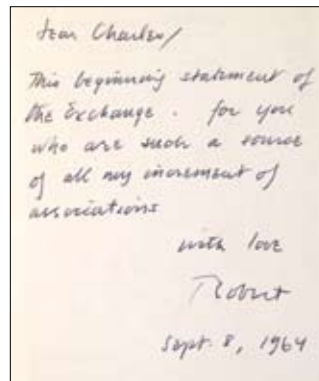 Dear Charles/
This beginning statement of
the Exchange. for you
who are such a source
of all my increment of
associations
with love
Robert
Sept. 8, 1964